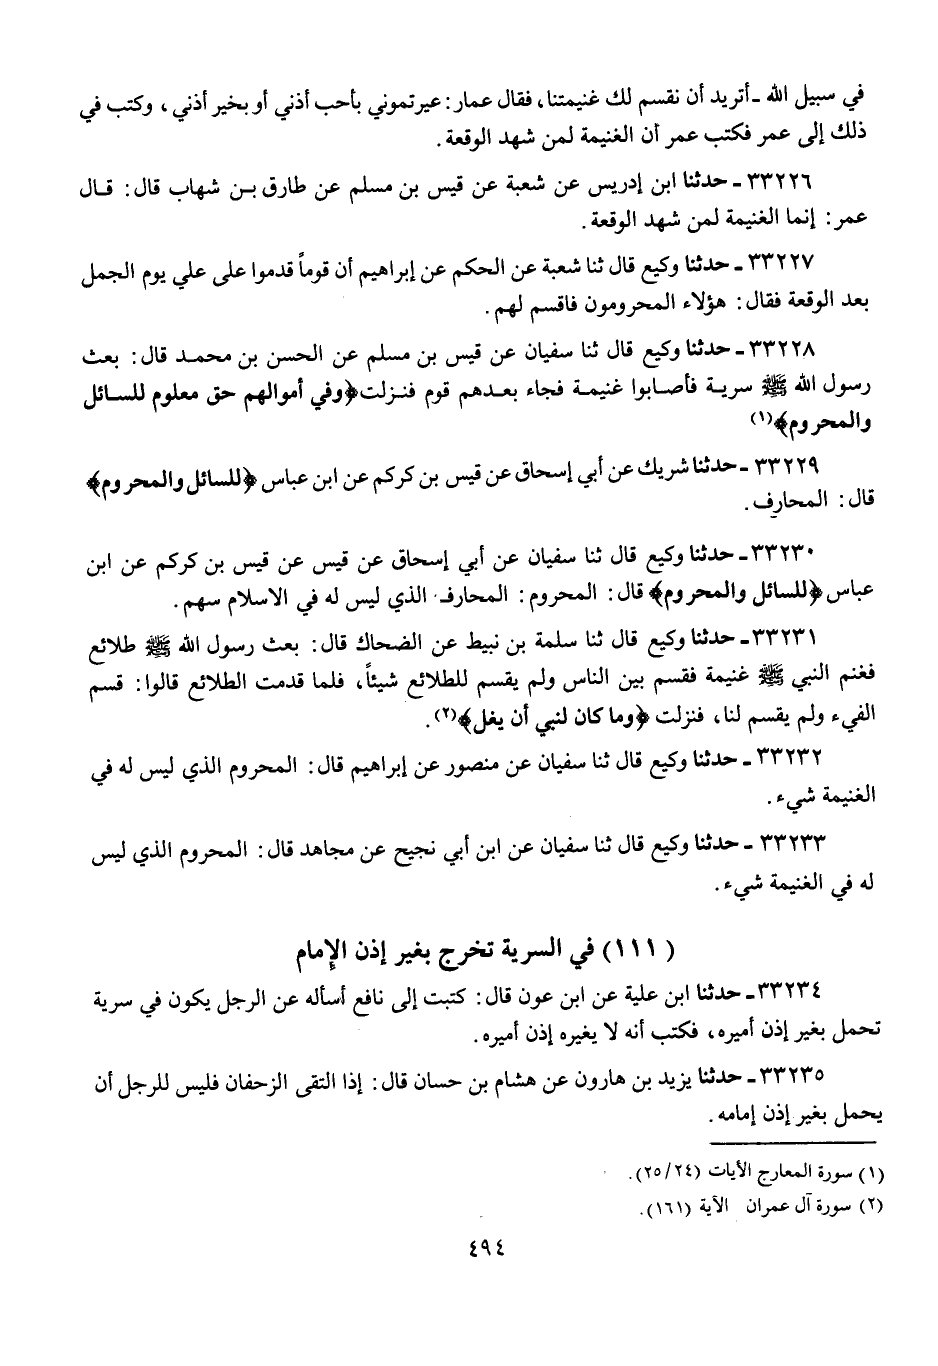 في سبيل الله ـ أتريد أن نقسم لك غنيمتنا، فقال عمار: عيرتموني بأحب أذني أو بخير أذني، وكتب في
ذلك إلى عمر فكتب عمر أن الغنيمة لمن شهد الوقعة.
٣٣٢٢٦ ـ حدثنا ابن إدريس عن شعبة عن قيس بن مسلم عن طارق بن شهاب قال: قال
عمر: إنما الغنيمة لمن شهد الوقعة.
٣٣٢٢٧ ـ حدثنا وكيع قال ثنا شعبة عن الحكم عن إبراهيم أن قوماً قدموا على علي يوم الجمل
بعد الوقعة فقال: هؤلاء المحرومون فاقسم لهم.
٣٣٢٢٨ ـ حدثنا وكيع قال ثنا سفيان عن قيس بن مسلم عن الحسن بن محمد قال: بعث
رسول الله ﷺ سرية فأصابوا غنيمة فجاء بعدهم قوم فنزلت ﴿وفي أموالهم حق معلوم للسائل
والمحروم﴾(١)
٣٣٢٢٩ ـ حدثنا شريك عن أبي إسحاق عن قيس بن كركم عن ابن عباس ﴿للسائل والمحروم﴾
قال: المحارف.
٣٣٢٣٠ ـ حدثنا وكيع قال ثنا سفيان عن أبي إسحاق عن قيس عن قيس بن كركم عن ابن
عباس ﴿للسائل والمحروم﴾ قال: المحروم: المحارف الذي ليس له في الاسلام سهم.
٣٣٢٣١ ـ حدثنا وكيع قال ثنا سلمة بن نبيط عن الضحاك قال: بعث رسول الله ﷺ طلائع
فغنم النبي ﷺ غنيمة فقسم بين الناس ولم يقسم للطلائع شيئاً، فلما قدمت الطلائع قالوا: قسم
الفيء ولم يقسم لنا، فنزلت ﴿وما كان لنبي أن يغل﴾(٢).
٣٣٢٣٢ ـ حدثنا وكيع قال ثنا سفيان عن منصور عن إبراهيم قال: المحروم الذي ليس له في
الغنيمة شيء.
٣٣٢٣٣ ـ حدثنا وكيع قال ثنا سفيان عن ابن أبي نجيح عن مجاهد قال: المحروم الذي ليس
له في الغنيمة شيء.
(١١١) في السرية تخرج بغير إذن الإمام
٣٣٢٣٤ ـ حدثنا ابن علية عن ابن عون قال: كتبت إلى نافع أسأله عن الرجل يكون في سرية
تحمل بغير إذن أميره، فكتب أنه لا يغيره إذن أميره.
٣٣٢٣٥ ـ حدثنا يزيد بن هارون عن هشام بن حسان قال: إذا التقى الزحفان فليس للرجل أن
يحمل بغير إذن إمامه.
(١) سورة المعارج الأيات (٢٥/٢٤).
(٢) سورة آل عمران الآية (١٦١).
٤٩٤